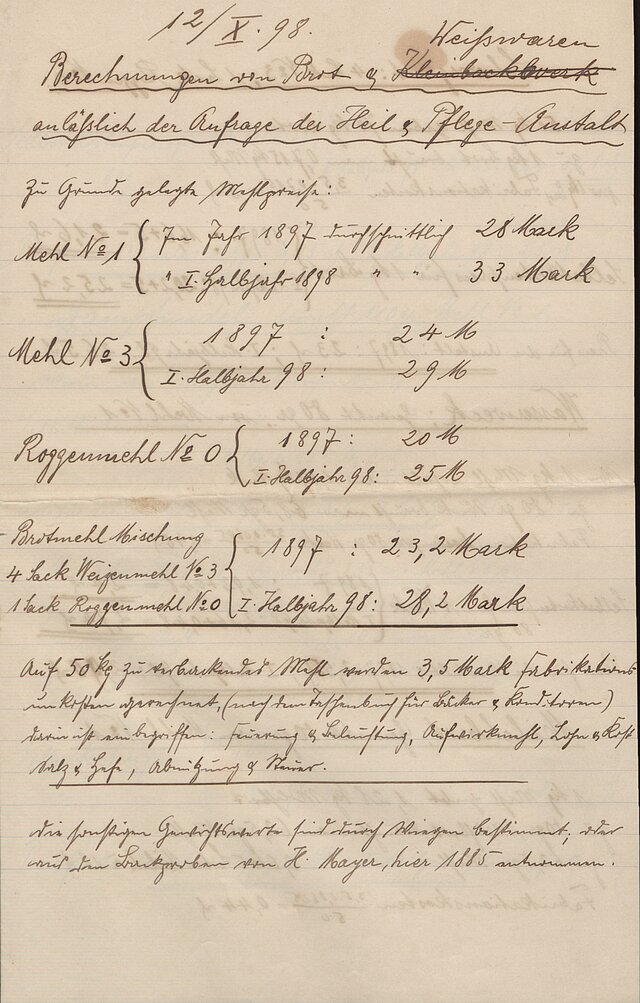 12/X. 98.
Weißwaren
Berechnungen von Brot & Kleinbackwerk
anläßlich der Anfrage der Heil & Pflege-Anstalt
Zu Grunde gelegte Mehlpreise:
Mehl No 1 { Im Jahr 1897 durchschnittlich 28 Mark
" I. Halbjahr 1898 " " 33 Mark
Mehl No 3 { 1897 : 24 M
I. Halbjahr 98 : 29 M
Roggenmehl No 0 { 1897 : 20 M
I. Halbjahr 98 : 25 M
Brotmehl Mischung
4 Sack Weizenmehl No 3 { 1897 : 23,2 Mark
1 Sack Roggenmehl No 0 I. Halbjahr 98 : 28,2 Mark
Auf 50 kg zu verbackendes Mehl werden 3,5 Mark Fabrikations
unkosten gerechnet, (nach dem Taschenbuch für Bäcker & Konditoren)
darin ist einbegriffen: Feuerung & Beleuchtung, Aufwirkmehl, Lohn & Kost
Salz & Hefe, Abnützung & Steuer.
Die sonstigen Gewichtswerte sind durch Wiegen bestimmt, oder
aus den Backproben von H. Mayer, hier 1885 entnommen.